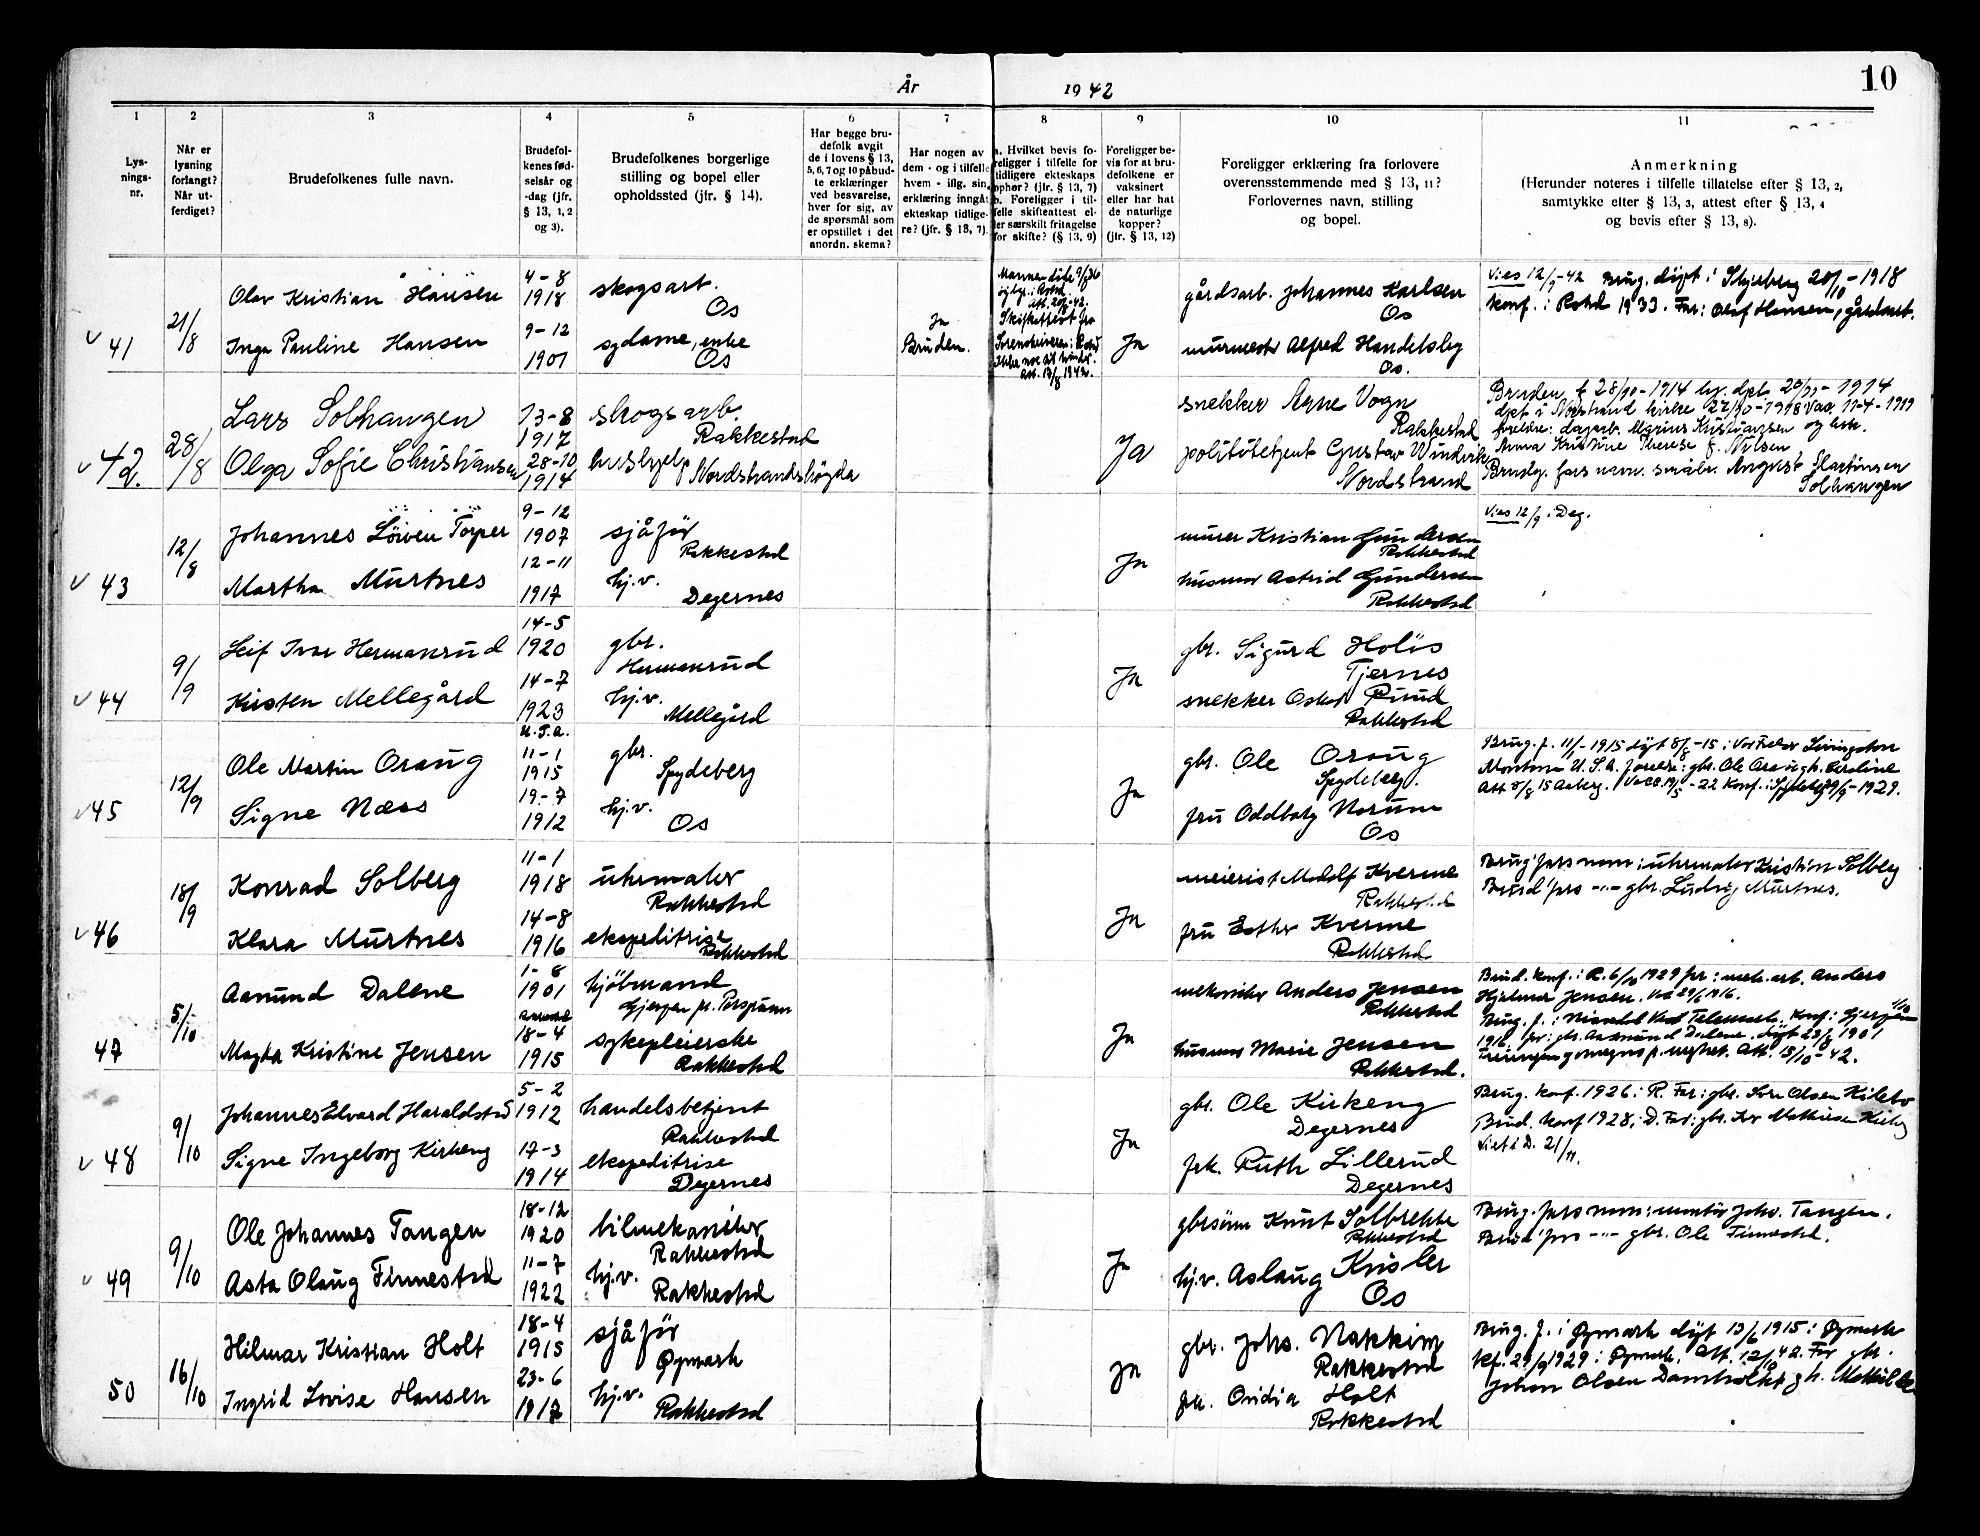 År 1942
10
1 2 3 4 5 6 7 8 9 10 11
Lys-
nings-
nr.
Når er
lysning
forlangt?
Når ut-
ferdiget?
Brudefolkenes fulle navn.
Brudefol-
kenes fød-
selsår og
-dag (jfr.
§ 13, 1, 2
og 3).
Brudefolkenes borgerlige
stilling og bopel eller
opholdssted (jfr. § 14).
Har begge bru-
defolk avgit
de i lovens § 13,
5, 6, 7 og 10 påbud-
te erklæringer
ved besvarelse,
hver for sig, av
de spørsmål som
er opstillet i det
anordn. skema?
Har nogen av
dem - og i tilfelle
hvem - iflg. sin
erklæring inngåt
ekteskap tidlige-
re? (jfr. § 13, 7).
a. Hvilket bevis fo-
religger i tilfelle for
tidligere ekteskaps
ophør? (jfr. § 13, 7)
b. Foreligger i til-
felle skifteattest el-
ler særskilt fritagelse
for skifte? (§ 13, 9)
Foreligger be-
vis for at bru-
defolkene er
vaksinert
eller har hat
de naturlige
kopper?
(jfr. § 13, 12)
Foreligger erklæring fra forlovere
overensstemmende med § 13, 11?
Forlovernes navn, stilling
og bopel.
Anmerkning
(Herunder noteres i tilfelle tillatelse efter § 13, 2,
samtykke efter § 13, 3, attest efter § 13, 4
og bevis efter § 13, 8).
41
21/8
Olav Kristian Hansen
4-8
1918
skogsarb.
Os
Inga Pauline Hansen
9-12
1901
sydame, enke
Os
Ja
Bruden.
Ja
gårdsarb. Johannes Karlsen
Os
murmester Alfred Handelsby
Os.
Vies 12/9-42 Brug. døpt i Skjeberg 20/10-1918
konf. i Rakkestad 1933. Far: Olaf Hansen, gårdsarb.
42.
28/8
Lars Solhaugen
13-8
1917
skogsarb.
Rakkestad
Olga Sofie Christiansen
28-10
1914
hushjelp
Nordstrandshøgda
Ja
snekker Arne Vogn
Rakkestad
politibetjent Gustav Windvik
Nordstrand
Bruden f. 28/10-1914
døpt i Nordstrand kirke
foreldre: dagarb. Marius Kristiansen og hstr.
Anna Kristine Therese f. Nilsen
Brudg. fars navn: småbr. August Martinsen
Solhaugen
43
12/8
Johannes Torper
9-12
1907
sjåfør
Rakkestad
Martha Murtnes
12-11
1917
hj.v.
Degernes
Ja
murer Kristian Gundersen
Rakkestad
husmor Astrid Gundersen
Rakkestad
Vies 12/9 i Deg.
44
9/9
Leif Ivar Hermansrud
14-5
1920
gbr.
Hermansrud
Kirsten Mellegård
14-7
1923
hj.v.
Mellegård
Ja
gbr. Sigurd Holøs
Tjernes
snekker Oskar Ruud
Rakkestad
45
12/9
Ole Martin Oraug
U.S.A.
11-1
1915
gbr.
Spydeberg
Signe Næss
19-7
1912
hj.v.
Os
Ja
gbr. Ole Oraug
Spydeberg.
fru Oddborg Norum
Os
Brug. f. 11/1-1915 døpt 8/8-15
Montana U.S.A. foreldre: gbr. Ole Oraug
46
18/9
Konrad Solberg
11-1
1918
uhrmaker
Rakkestad
Klara Murtnes
14-8
1916
ekspeditrise
Rakkestad
Ja
meierist Kverme
Rakkestad
fru Esther Kverme
Rakkestad
Brug' fars navn: uhrmaker Kristian Solberg
Brud' fars -"- gbr. Ludvig Murtnes.
47
5/10
Aamund Dalene
1-8
1901
kjøbmand
Gjerpen
Magda Kristine Jensen
18-4
1915
sykepleierske
Rakkestad
Ja
mekaniker Anders Jensen
Rakkestad
husmor Marie Jensen
Rakkestad.
Brud. konf. i R. 6/10 1929 far: mek. arb. Anders
Hjalmar Jensen.
48
9/10
Johannes Edvard Haraldstad
5-2
1912
handelsbetjent
Rakkestad
Signe Ingeborg Kirkeng
17-3
1914
ekspeditrise
Degernes
Ja
gbr. Ole Kirkeng
Degernes
frk. Ruth Lillerud
Degernes
Brug. konf. 1926 i R. Far: gbr. Olsen
Brud. konf 1928 i D. Far: gbr. Mathisen Kirkeng
Viet i D. 21/11.
49
9/10
Ole Johannes Tangen
18-12
1920
bilmekaniker
Rakkestad
Asta Olaug Finnestad
11-7
1922
hj.v.
Rakkestad
Ja
gbrsønn Knut Solbrekke
Rakkestad
hj.v. Aslaug Krisler
Os
Brug. fars navn: montør Johs. Tangen.
Brud' fars -"- gbr. Ole Finnestad.
50
16/10
Hilmar Kristian Holt
18-4
1915
sjåfør
Øymark
Ingrid Lovise Hansen
23-6
1917
hj.v.
Rakkestad
Ja
gbr. Johs. Nakkim
Rakkestad
frk. Ovidia Holt
Rakkestad
Brug. f. i Øymark døpt 13/6 1915 i Øymark
kf. 29/9 1929 i Øymark. Att. 12/10 42. Far gbr.
Johan Olsen Damholt